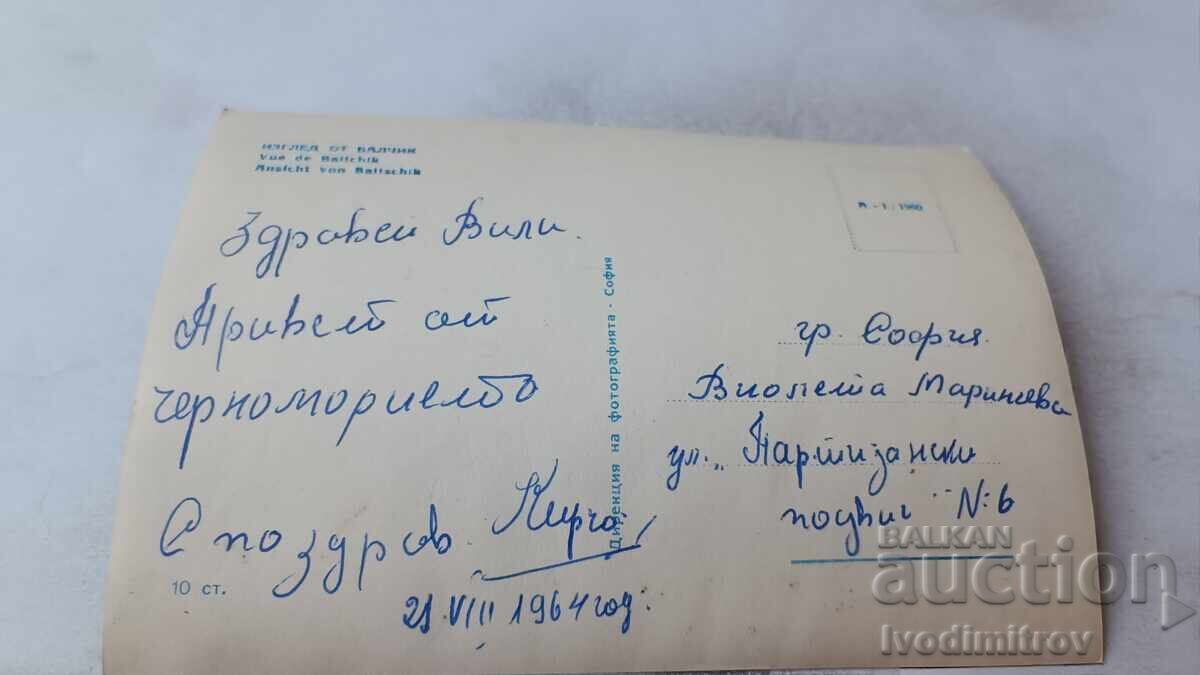 ИЗГЛЕД ОТ БАЛЧИК
Vue de Baltchik
Ansicht von Baltschik
Здравей Вили.
Привет от
черноморието
С поздрав
21 VIII 1964 год.
10 ст.
Дирекция на фотографията · София
гр. София
Виолета Маринчева
ул. „Партизански
подвиг" №: 6
BALKAN
auction
Ivodimitrov